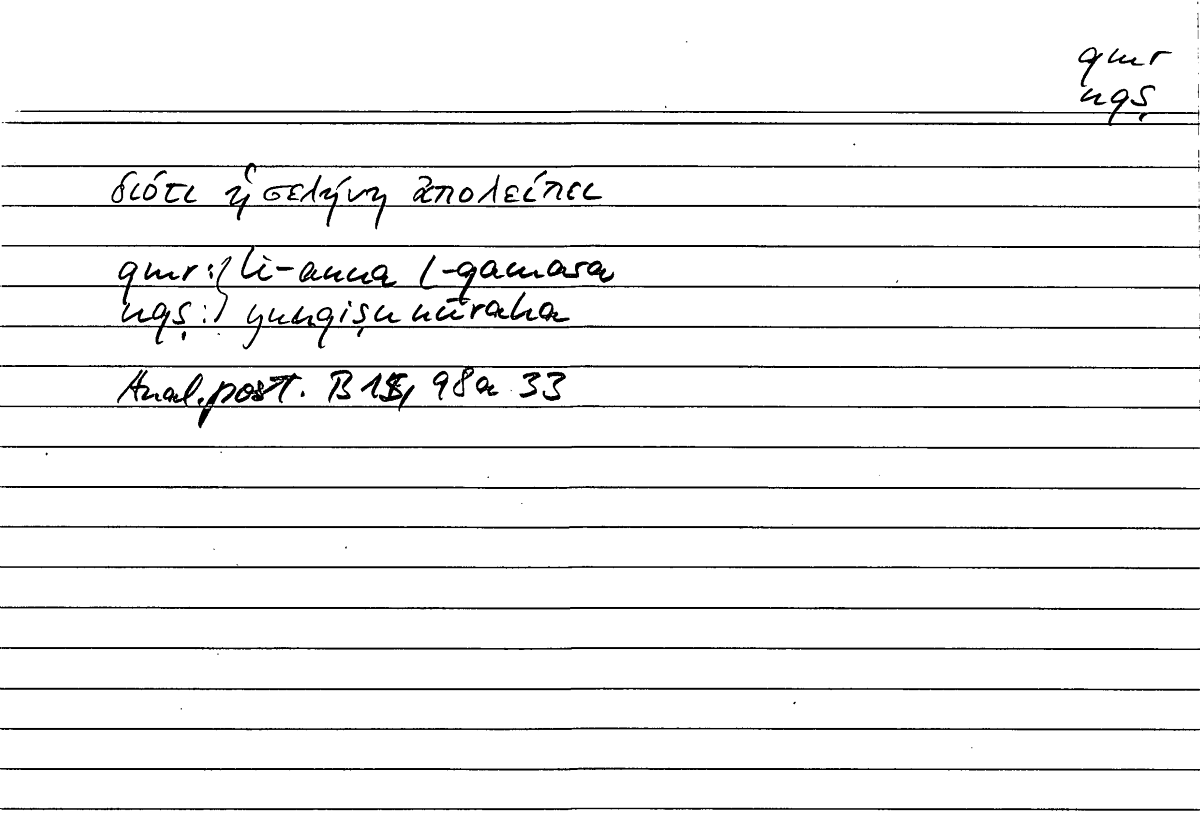 qmr
nqṣ
διότι ἡ σελήνη ἀπολείπει
qmr:} li-anna l-qamara
nqṣ:} yunqiṣu nūraha
Anal. post. B 15, 98a 33